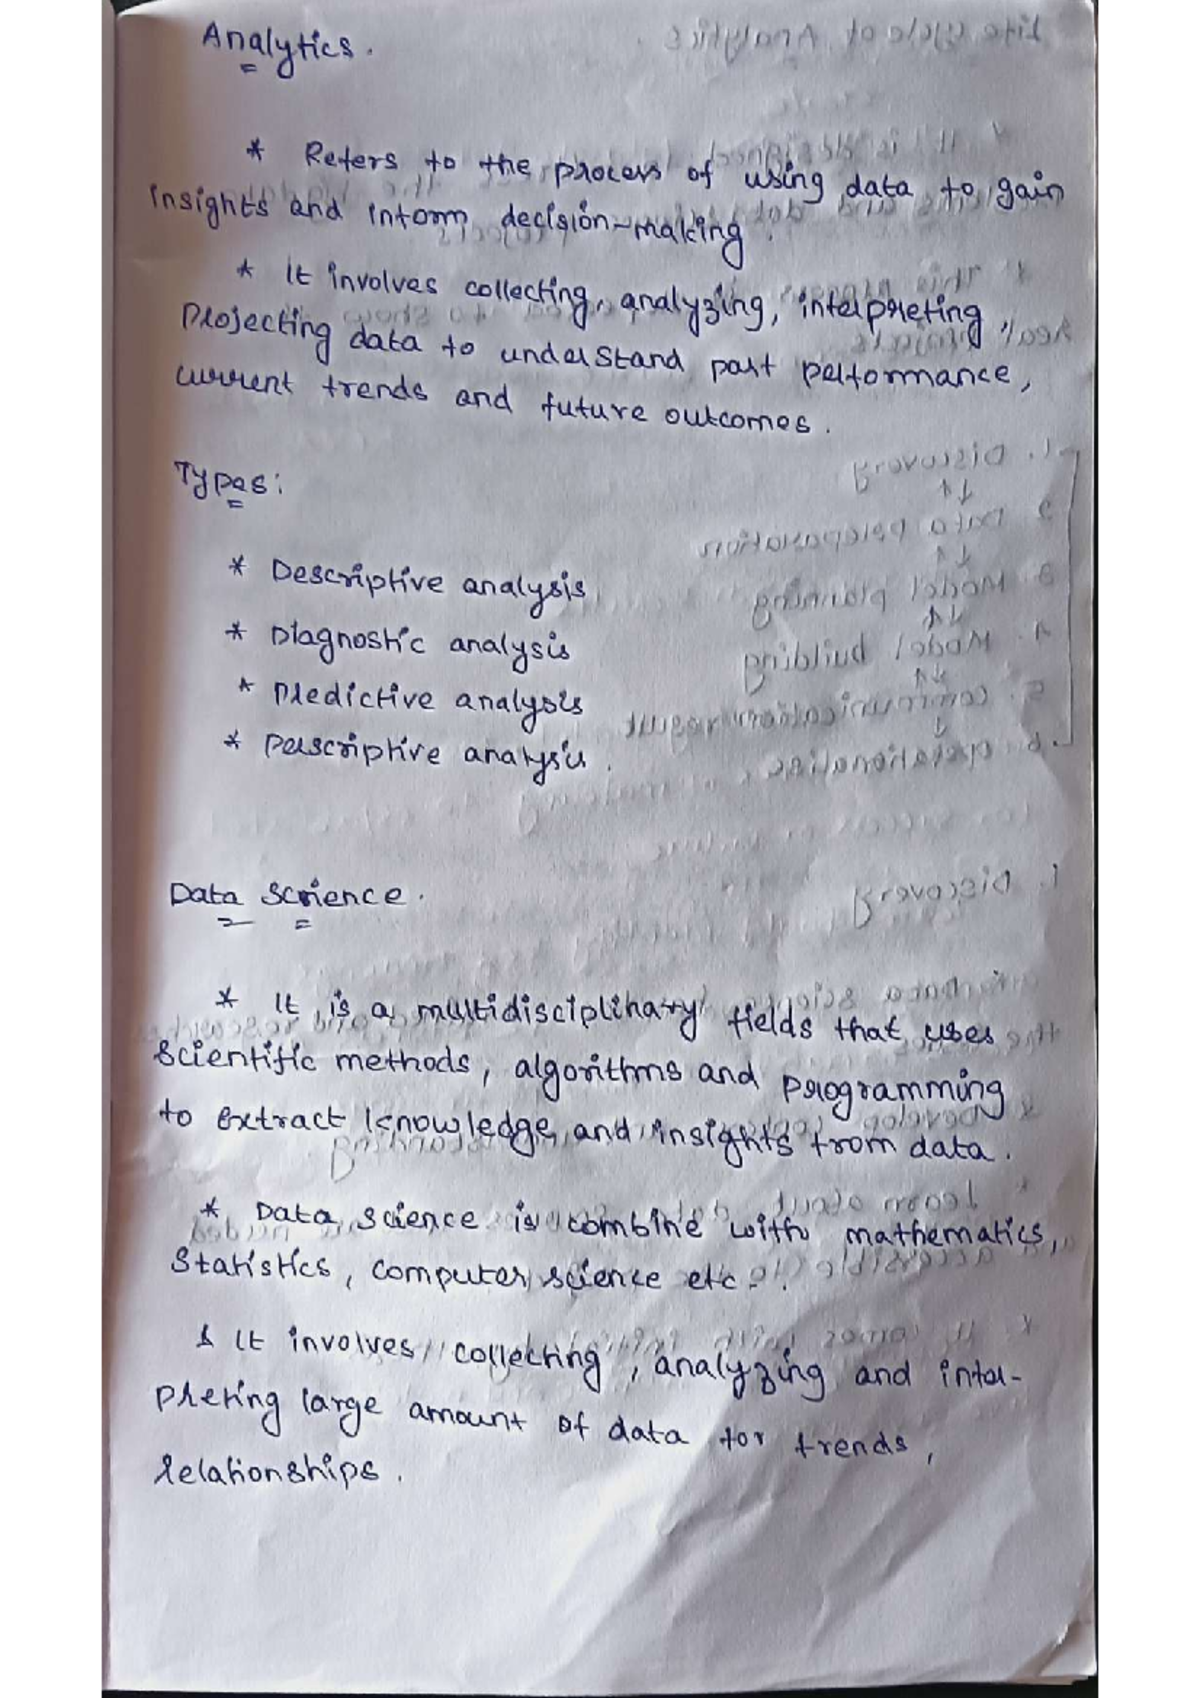 Analytics.
* Refers to the process of using data to gain
insights and inform decision-making.
* It involves collecting, analyzing, interpreting,
projecting data to understand past performance,
current trends and future outcomes.
Types:
* Descriptive analysis
* Diagnostic analysis
* Predictive analysis
* Perscriptive analysis.
Data Science.
* It is a multidisciplinary fields that uses
scientific methods, algorithms and programming
to extract knowledge and insights from data.
* Data science is combine with mathematics,
Statistics, computer science etc..
* It involves collecting, analyzing and inter-
preting large amount of data for trends,
relationships.